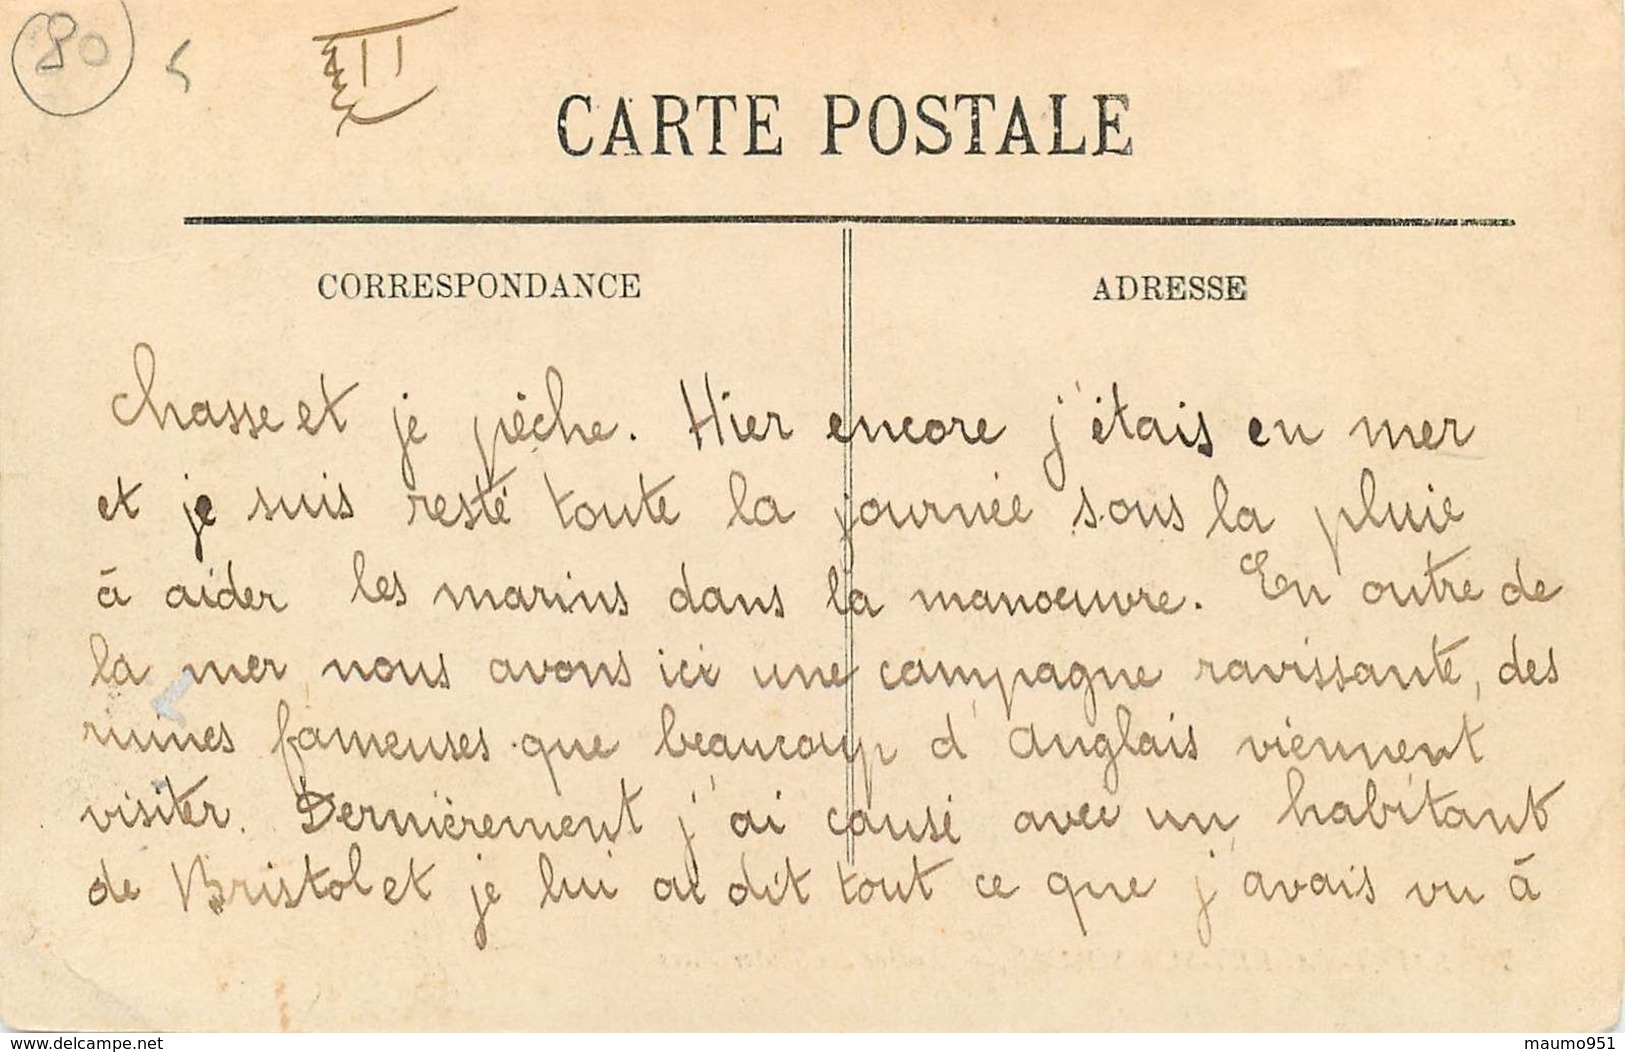 80
III
CARTE POSTALE
CORRESPONDANCE
ADRESSE
chasse et je pêche. Hier encore j'étais en mer
et je suis resté toute la journée sous la pluie
à aider les marins dans la manoeuvre. En outre de
la mer nous avons ici une campagne ravissante, des
ruines fameuses que beaucoup d'Anglais viennent
visiter. Dernièrement j'ai causé avec un habitant
de Bristol et je lui ai dit tout ce que j'avais vu à
www.delcampe.net
maumo951